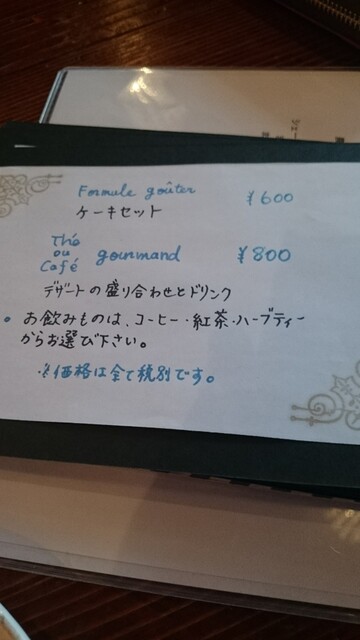 Formule goûter ¥600
ケーキセット
Thé
ou
Café gourmand ¥800
デザートの盛り合わせとドリンク
・お飲みものは、コーヒー・紅茶・ハーブティー
からお選び下さい。
※価格は全て税別です。